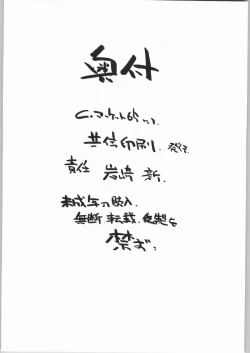 奥付
C.マーケット65にて
共信印刷. 発行.
責任 岩崎 新.
未成年の購入.
無断.転載.複製を
禁ず.